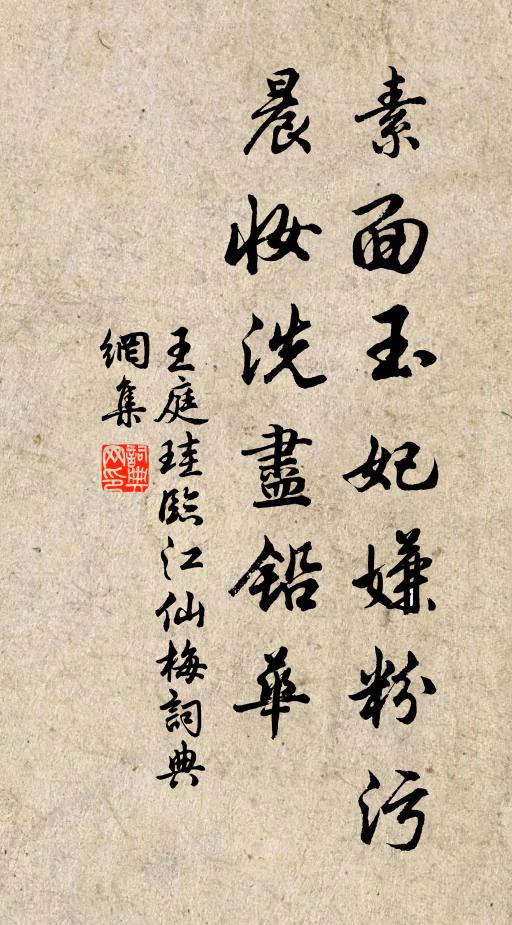 素面玉妃嫌粉污
晨妆洗盡鉛華
王庭珪臨江仙梅詞典
網集
詞典
网印